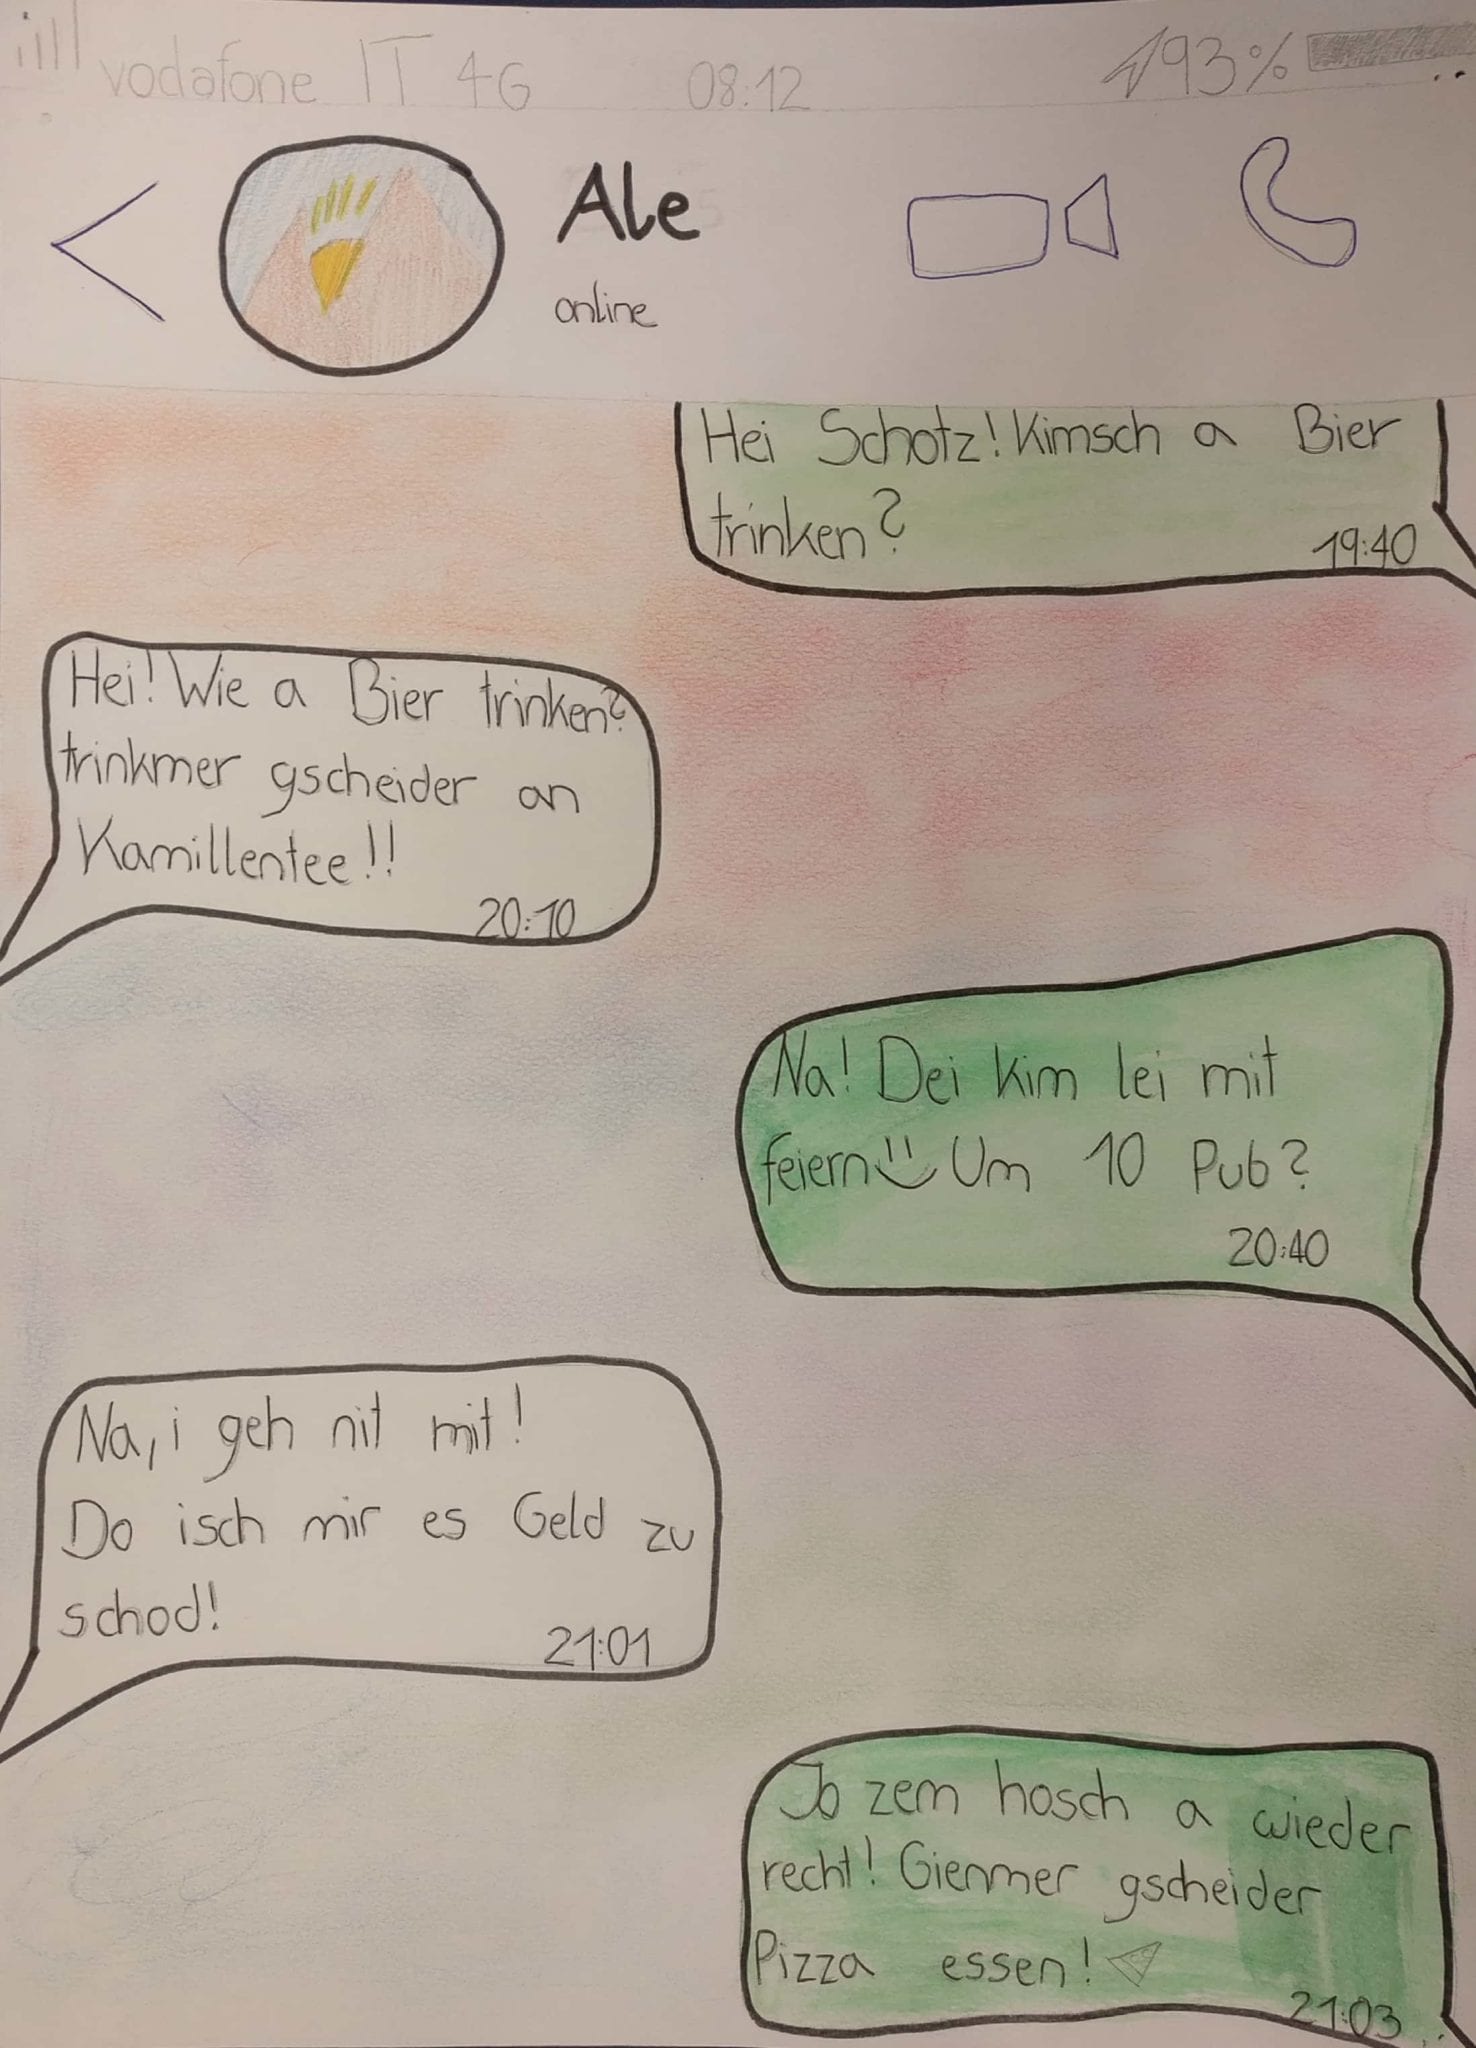 vodafone IT 4G 08:12 93%
Ale
online
Hei Schotz! Kimsch a Bier
trinken?
19:40
Hei! Wie a Bier trinken?
trinkmer gscheider an
Kamillentee!!
20:10
Na! Dei kim lei mit
feiern Um 10 Pub?
20:40
Na, i geh nit mit!
Do isch mir es Geld zu
schod!
21:01
Jo zem hosch a wieder
recht! Gienmer gscheider
Pizza essen!
21:03